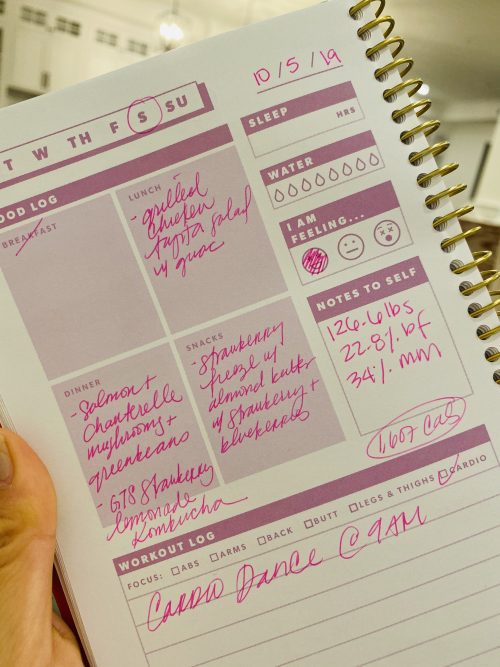 10/5/19
T W TH F S SU
SLEEP
HRS
WATER
I AM
FEELING...
NOTES TO SELF
126.6 lbs
22.8% bf
34% mm
1,607 cals
OOD LOG
BREAKFAST
LUNCH
- grilled
chicken
fajita salad
w/ guac
DINNER
- Salmon +
chanterelle
mushrooms +
greenbeans
- GTS Strawberry
lemonade
Kombucha
SNACKS
- Strawberry
freeze w/
almond butter
w/ strawberry +
blueberries
WORKOUT LOG
FOCUS: ABS ARMS BACK BUTT LEGS & THIGHS CARDIO
CARDIO DANCE @ 9AM